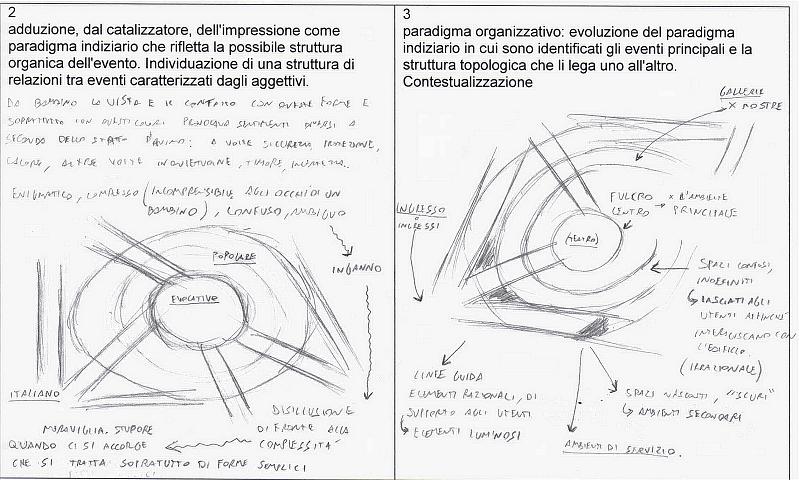 2
adduzione, dal catalizzatore, dell'impressione come
paradigma indiziario che rifletta la possibile struttura
organica dell'evento. Individuazione di una struttura di
relazioni tra eventi caratterizzati dagli aggettivi.
DA BAMBINO LA VISTA E IL CONTATTO CON QUESTE FORME E
SOPRATTUTTO CON QUESTI COLORI PROVOCAVA SENTIMENTI DIVERSI A
SECONDA DELLO STATO D'ANIMO: A VOLTE SICUREZZA, PROTEZIONE,
CALORE, ALTRE VOLTE INQUIETUDINE, TIMORE,
ENIGMATICO, COMPLESSO (INCOMPRENSIBILE AGLI OCCHI DI UN
BAMBINO), CONFUSO, AMBIGUO
INGANNO
POPOLARE
EVOCATIVO
ITALIANO
DISILLUSIONE
DI FRONTE ALLA
COMPLESSITA'
MERAVIGLIA, STUPORE
QUANDO CI SI ACCORGE
CHE SI TRATTA SOPRATUTTO DI FORME SEMPLICI
3
paradigma organizzativo: evoluzione del paradigma
indiziario in cui sono identificati gli eventi principali e la
struttura topologica che li lega uno all'altro.
Contestualizzazione
GALLERIE
X MOSTRE
INGRESSO
O INGRESSI
FULCRO
CENTRO → X L'AMBIENTE
PRINCIPALE
(TEATRO)
SPAZI CONFUSI,
INDEFINITI
LASCIATI AGLI
UTENTI AFFINCHE'
INTERAGISCANO CON
L'EDIFICIO.
(IRRAZIONALE)
LINEE GUIDA
ELEMENTI RAZIONALI, DI
SUPPORTO AGLI UTENTI
ELEMENTI LUMINOSI
SPAZI NASCOSTI, "SCURI"
AMBIENTI SECONDARI
AMBIENTI DI SERVIZIO.